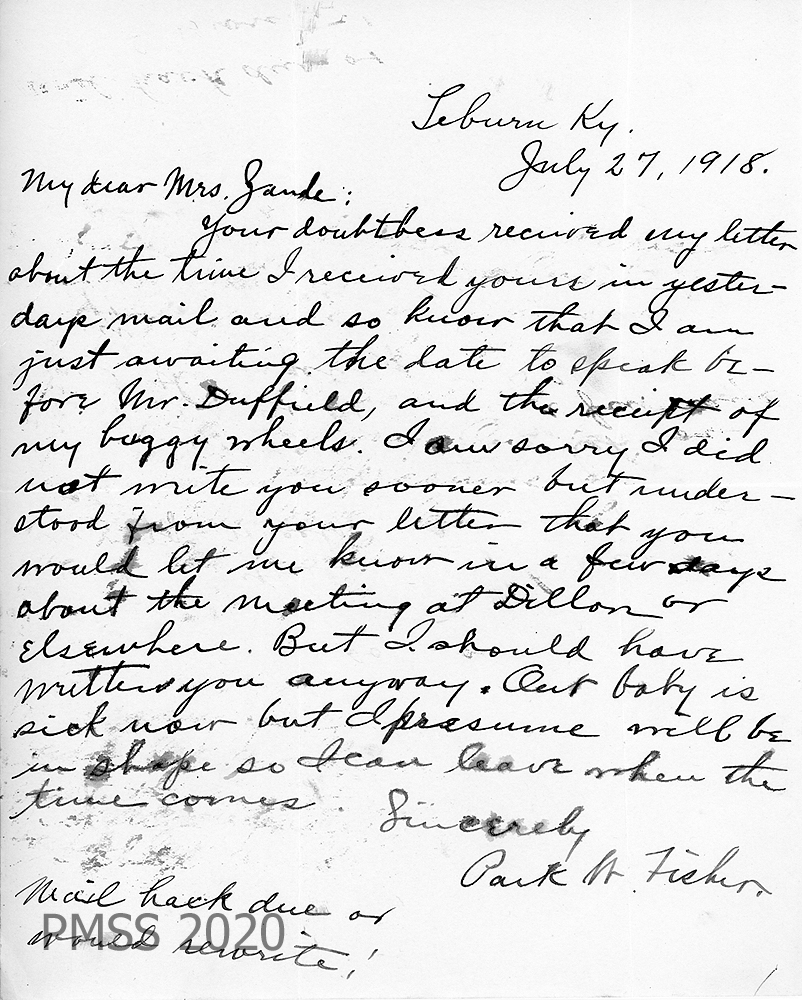 Leburn Ky.
July 27, 1918.
My dear Mrs. Zande:
Your doubtless received my letter
about the time I received yours in yester-
days mail and so know that I am
just awaiting the date to speak be-
fore Mr. Duffield, and the receipt of
my buggy wheels. I am sorry I did
not write you sooner but under-
stood from your letter that you
would let me know in a few days
about the meeting at Dillon or
elsewhere. But I should have
written you anyway. Our baby is
sick now but I presume will be
in shape so I can leave when the
time comes.
Sincerely
Park W. Fisher.
Mail hack due or
would rewrite!
PMSS 2020